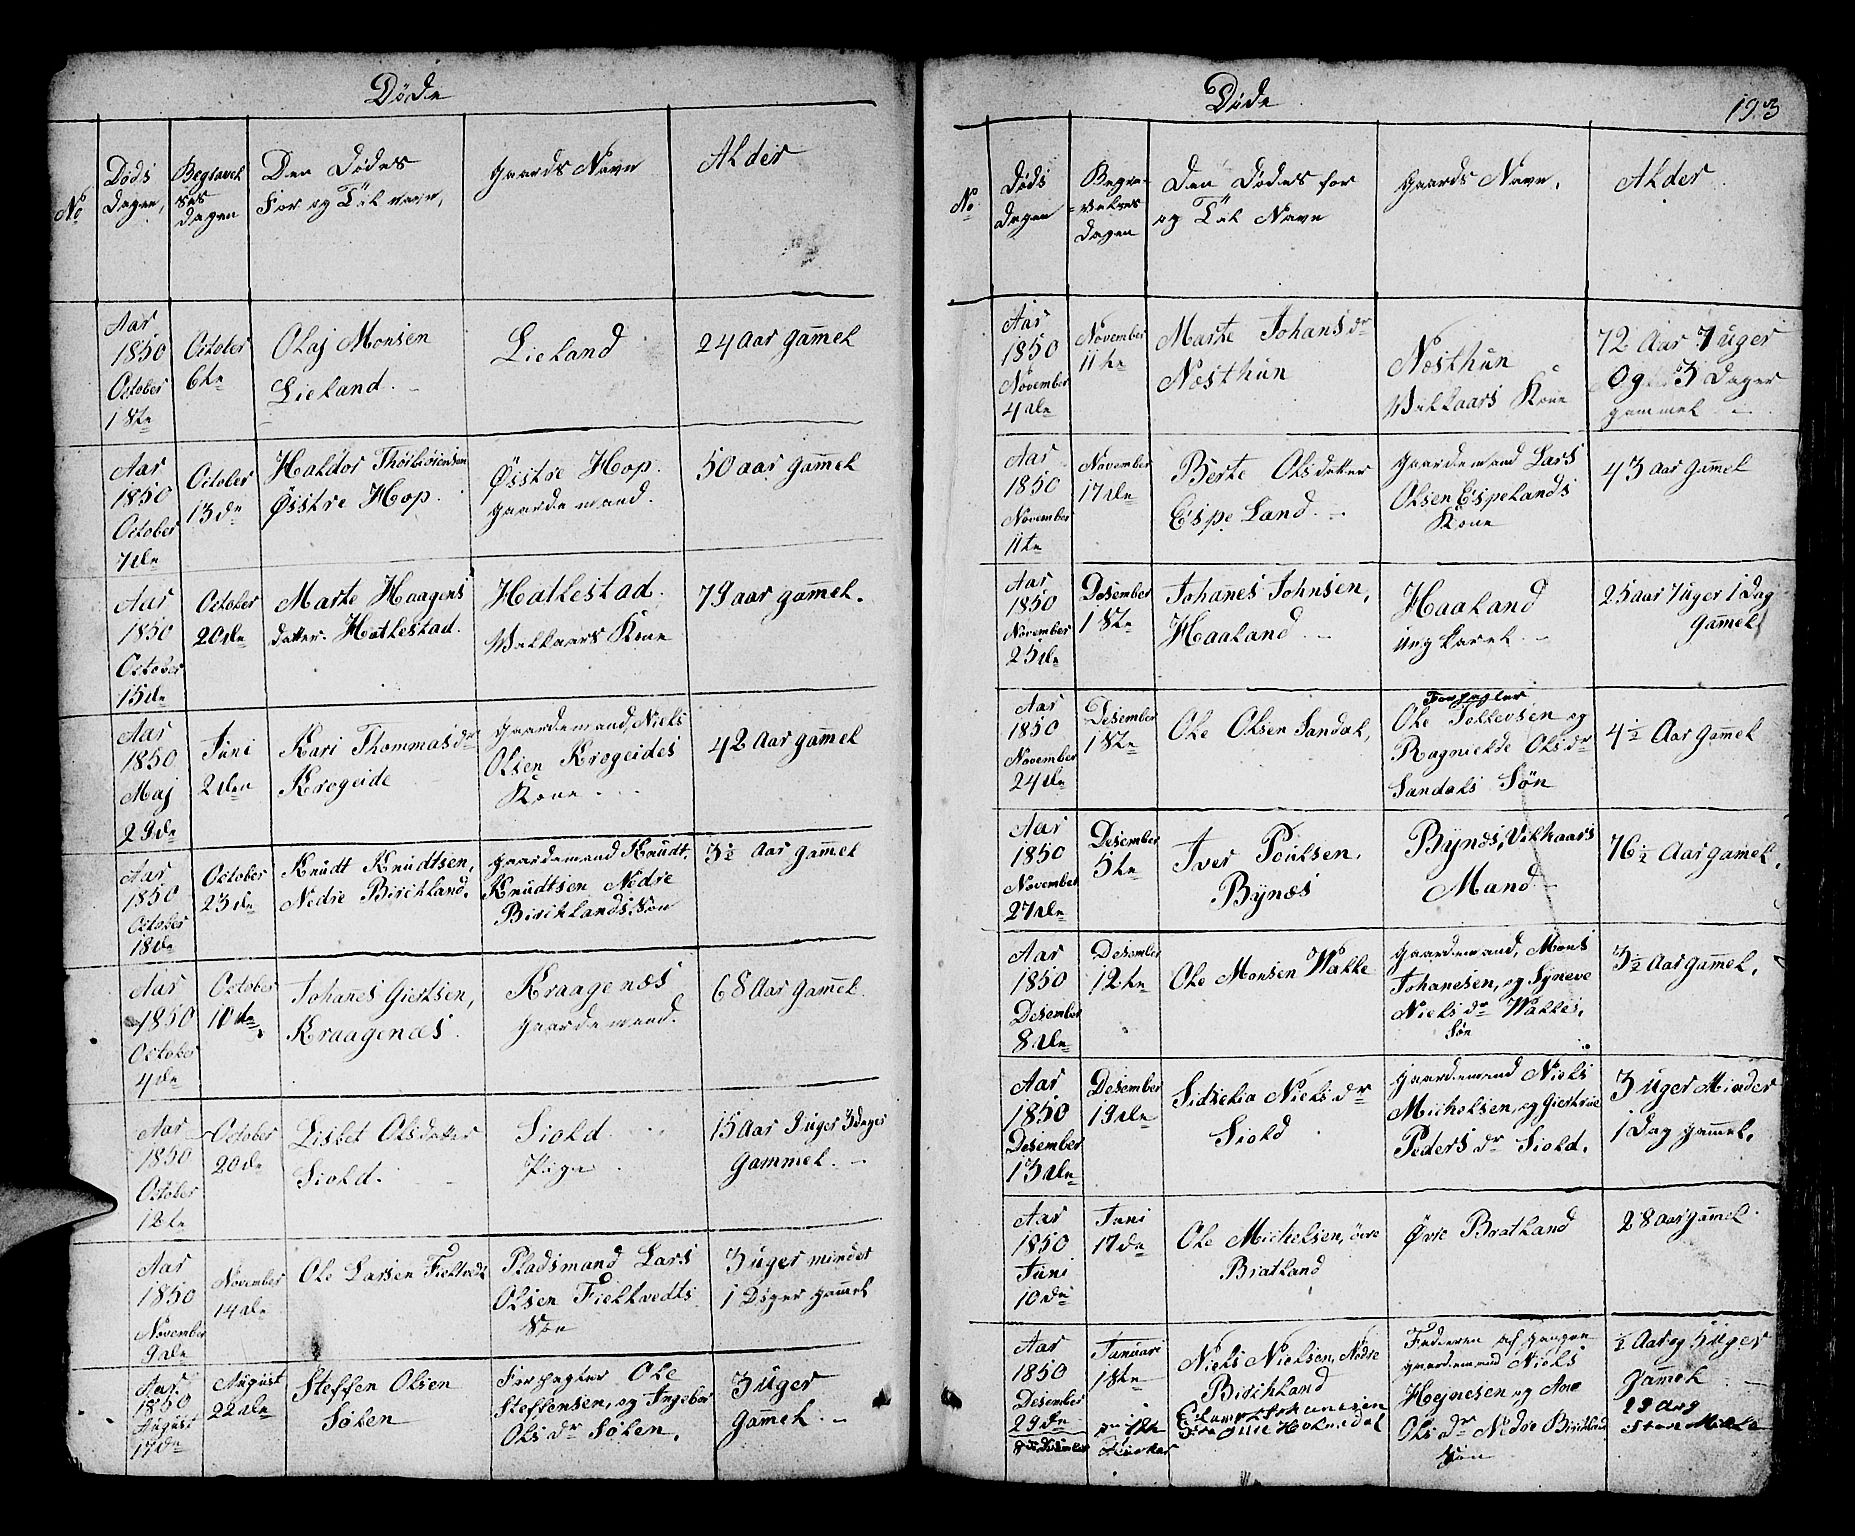 Døde
No
Døds
Dagen,
Begravel
ses
dagen
Den Dødes
For og Til navn,
Gaards Navn
Alder
Aar
1850
October
1ste
October
6te
Olaj Monsen
Lieland.
Lieland
24 Aar gam̄el
Aar
1850
October
7de
October
13de
Haldor Thorbiörnsen
Øsstre Hop.
Øsstre Hop.
Gaardemand.
50 aar gam̄el
Aar
1850
October
15de
October
20de
Marte Haagens
datter. Hatlestad.
Hatlestad.
Vilkaars Kone
79 aar gam̄el.
Aar
1850
Maj
29de
Juni
2den
Kari Thommasdr
Krogeide
Gaardemand, Niels
Olsen Krogeides
Kone
42 Aar gam̄el
Aar
1850
October
18de
October
23de
Knüdt Knüdtsen,
Nedre Birchland.
Gaardemand Knüdt
Knüdtsen Nedre
Birchlands Søn
3½ Aar gam̄el
Aar
1850
October
4de
October
10de
Johanes Giertsen,
Kraagenæs.
Kraagenæs
Gaardemand.
68 Aar gam̄el.
Aar
1850
October
12te
October
20de
Lisbet Olsdatter
Siold.
Siold
Pige
15 Aar 9 uger 3 dager
Gammel.
Aar
1850
November
9de
November
14de
Ole Larsen Fieltvedt
Pladsmand Lars
Olsen Fieltvedts
Søn
3 uger mindet
1 Dager gam̄el
Aar
1850
August
17de
August
22de
Steffen Olsen
Søken
Forpagter Ole
Steffensen, og Ingebor
Olsdr Søken.
3 uger
Gam̄el.
Døde
193
No
Døds
Dagen
Begra-
velses
Dagen
Den Dødes for
og Til Navn
Gaards Navn,
Alder
Aar
1850
November
4de
November
11te
Marte Johansdr
Næsthün
Næsthün
Vilkaars Kone
72 Aar 7 uger
Og 3 Dager
gammel
Aar
1850
November
11te
November
17de
Berte Olsdatter
Espe Land.
Gaardemand Lars
Olsen Espelands
Kone
43 aar gam̄el
Aar
1850
November
25de
Desember
1ste
Johanes Johnsen,
Haaland.
Haaland
ungkarel
25 aar 7 uger 1 Dag
Gam̄el
Aar
1850
November
24de
Desember
1ste
Ole Olsen Sandal,
Forpagter
Ole Tollevsen og
Ragnielde Olsdr
Sandals Søn
4½ Aar gam̄el
Aar
1850
November
27de
Desember
5te
Iver Poulsen.
Bynæs
Bynæs, Vilkaars
Mand
76½ Aar gam̄el.
Aar
1850
Desember
8de
Desember
12te
Ole Monsen Walle
Gaardemand, Mons
Johanesen, og Syneve
Nielsdr Walles,
Søn
3½ Aar gam̄el.
Aar
1850
Desember
13de
Desember
19de
Sidselia Nielsdr
Siold
Gaardemand Niels
Michelsen, og Giertrue
Pedersdr Siold.
3 uger Minder
1 Dag gam̄el.
Aar
1850
Juni
10de
Juni
17de
Ole Michelsen, övre
Bratland
Øvre Bratland
28 aar gam̄el.
Aar
1850
Desember
29de
Januari
1ste
Niels Nielsen, Nedre
Birchland
Faderen af gangen
gaardemand Niels
Hognesen og Ane
Olsdr Nedre Birchland
Søn
½ Aar og 5 uger
Gam̄el